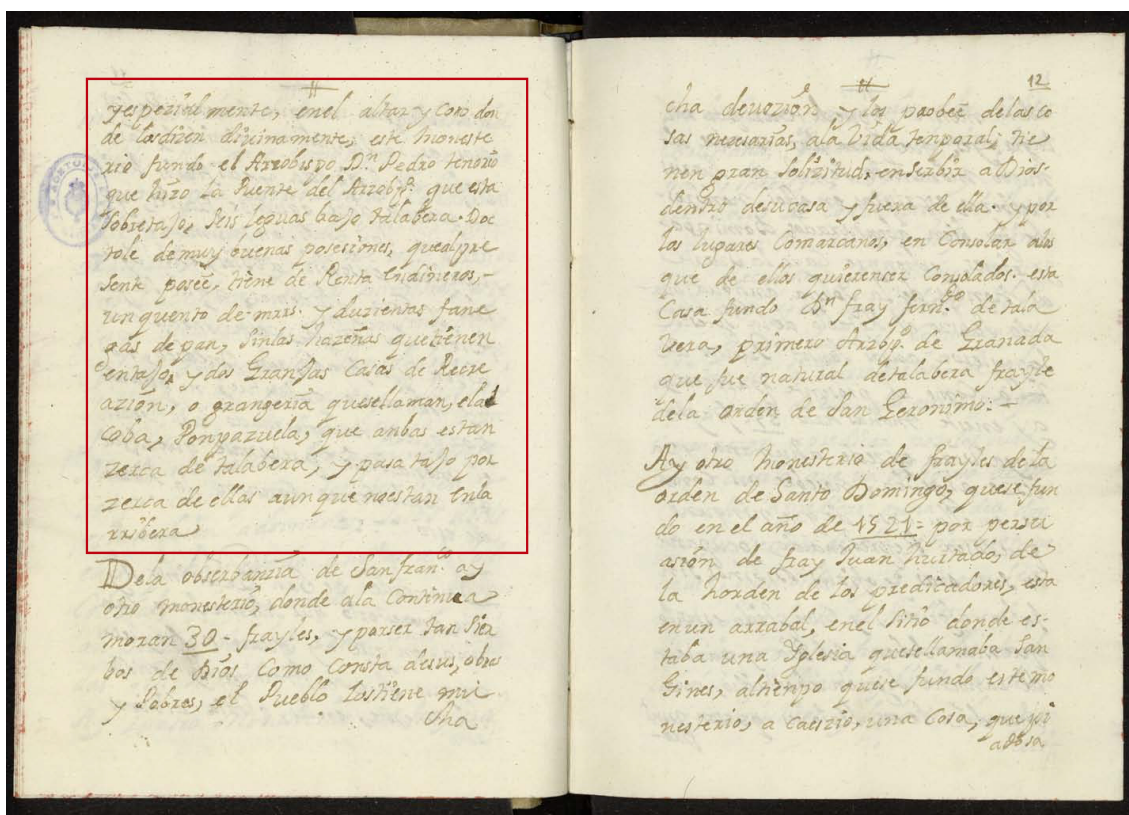 yespezial mente, enel altar y Coro don
de losdizen divinamente, este moneste
rio fundo el Arzobispo Dn. Pedro tenorio
que hizo la Puente del Arzobpo. que esta
sobretajo, seis leguas bajo talabera. Doc
tole demuy buenas posesiones, quealpre
sente poseè, tiene de Renta endineros, -
unquento de mrs. y duzientas fane
gas de pan, sinlas hazeñas quetienen
entajo, y dos Granjas Casas de Recre
azion, o grangeria quesellaman, elal
coba, Ponpazuela, que anbas estan
zerca de talabera, y pasa tajo por
zerca de ellas aunque noestan enla
rribera
Dela obserbanzia de Sanfranco. ay
otro monesterio, donde ala Continua
moran 30 - frayles, y porser tan sier
bos de Dios Como Consta desus, obras
y Pobres, el Pueblo lostiene mu
cha
12
cha devozion y los probeè delasco
sas nezesarias, ala Vida temporal; tie
nen gran solizitud, enserbir a Dios-
dentro desucasa y fuera de ella. y por
los lugares Comarcanos, en Consolar alos
que de ellos quierenser Consolados. esta
Casa fundo Dn fray ferndo. de tala
vera, primero Arzobpo. de Granada
que fue natural detalabera frayle
dela orden de San Geronimo: -
Ay otro monesterio de frayles dela
orden de Santo Domingo, quese fun
do en el año de 1521 = por persu
asion de fray Juan hurtado, de
la horden de los predicadores, esta
enun arrabal, enel sitio donde es-
taba una Yglesia quesellamaba San
Gines, altienpo quese fundo este mo
nesterio, a caezio, una Cosa, que pi
adosa